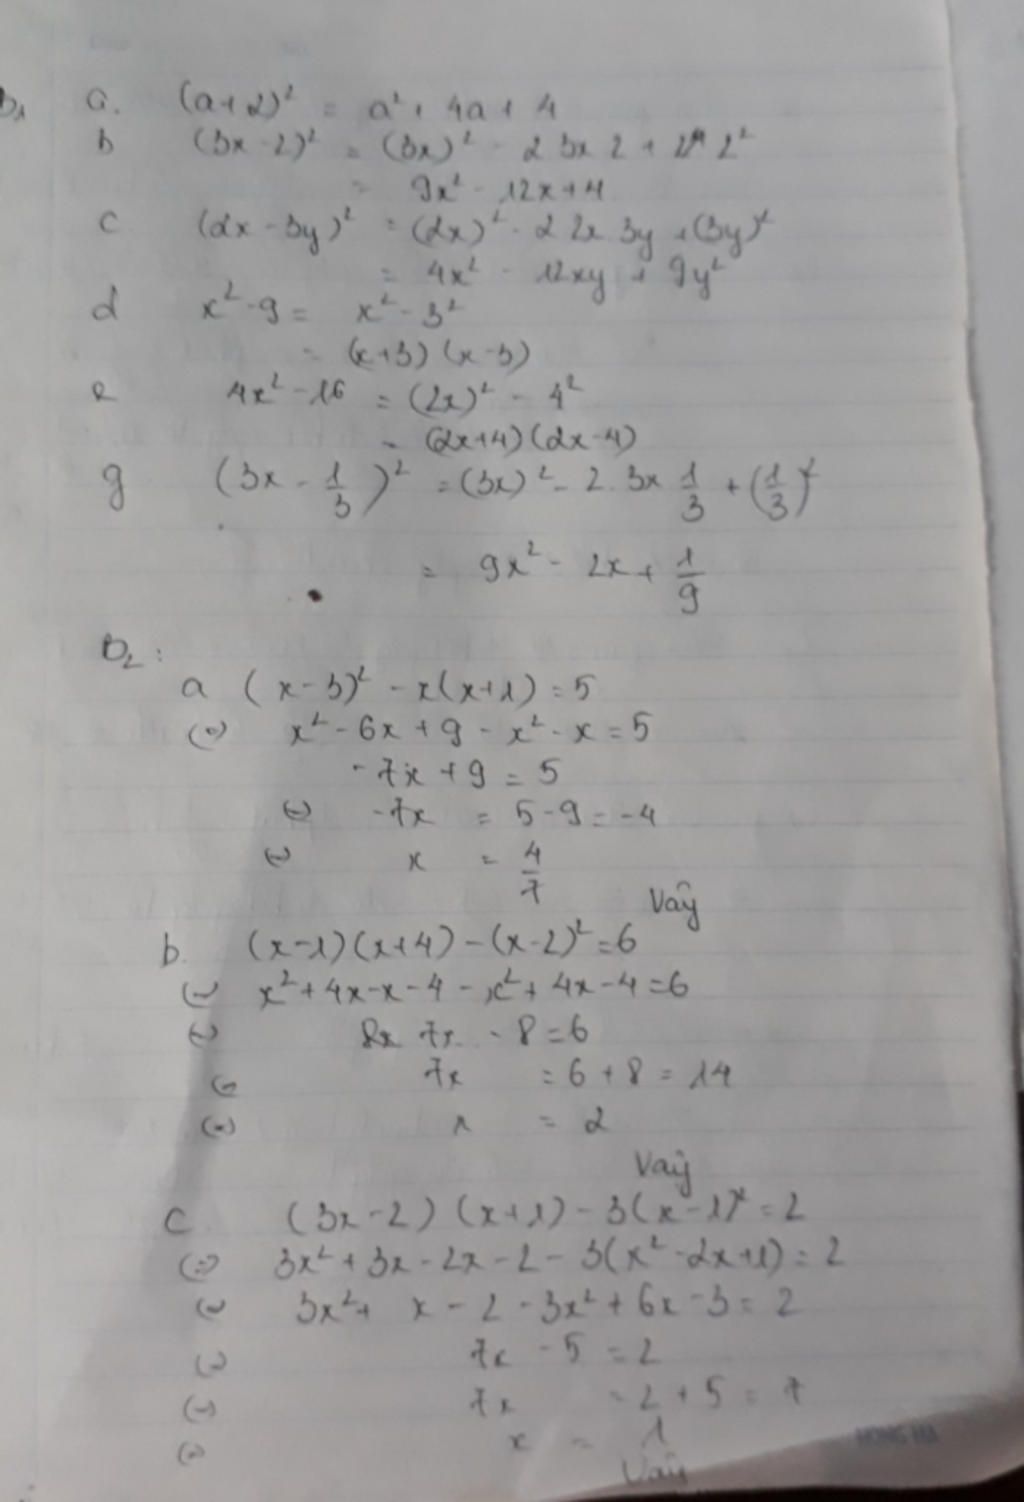 B1 a. (a+2)² = a² + 4a + 4
b (3x-2)² = (3x)² - 2 3x 2 + 2²
= 9x² - 12x+4
c (2x-3y)² = (2x)² - 2 2x 3y + (3y)²
= 4x² - 12xy + 9y²
d x²-9 = x²-3²
= (x+3)(x-3)
e 4x²-16 = (2x)² - 4²
= (2x+4)(2x-4)
g (3x - 1/3)² = (3x)² - 2. 3x 1/3 + (1/3)²
= 9x² - 2x + 1/9
B2:
a (x-3)² - x(x+1) = 5
(=) x² - 6x + 9 - x² - x = 5
-7x + 9 = 5
(=) -7x = 5-9 = -4
(=) x = 4/7
Vậy
b. (x-1)(x+4) - (x-2)² = 6
(=) x²+4x-x-4-x²+4x-4=6
(=) 8x 7x - 8 = 6
(=) 7x = 6+8 = 14
(=) x = 2
Vậy
c (3x-2)(x+1) - 3(x-1)² = 2
(=) 3x²+3x-2x-2-3(x²-2x+1) = 2
(=) 3x²+ x - 2 - 3x² + 6x - 3 = 2
(=) 7x - 5 = 2
(=) 7x = 2+5 = 7
(=) x = 1
Vậy
HONG HA